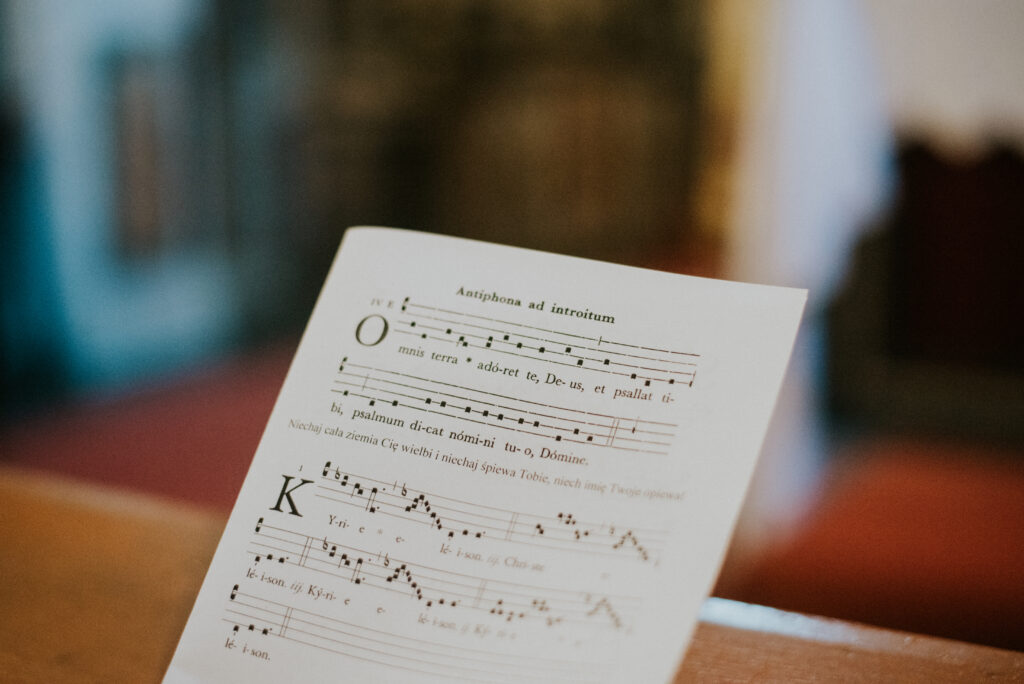 Antiphona ad introitum
IV E
Omnis terra * adó-ret te, De-us, et psallat ti-
bi, psalmum di-cat nómi-ni tu-o, Dómine.
Niechaj cała ziemia Cię wielbi i niechaj śpiewa Tobie, niech imię Twoje opiewa!
I
KY-ri- e * e- lé- i-son. iij. Chri-ste
lé- i-son. iij. Ký-ri- e e- lé- i-son. ij. Ký-ri- e
lé- i-son.